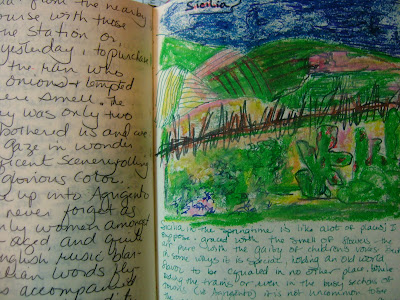 from the nearby
course with those
the station or,
yesterday, to purchase
the man who
onions & tempted
smell. The
was only two
bothered us and we
gaze in wonder
Scenery folly
glorious color.
up into Agrigento
never forget as
only women amongst
aged and quiet
English music blar-
words fly-
accompanied
Sicilia
Sicilia in the springtime is like alot of places I
suppose - graced with the smell of flowers - the
air pure with the gaiety of children's voices but
in some ways it is special, holding an old world
flavor to be equaled in no other place. While
riding the trains or even in the busy section of
towns (ie Agrigento) it is not uncommon to be